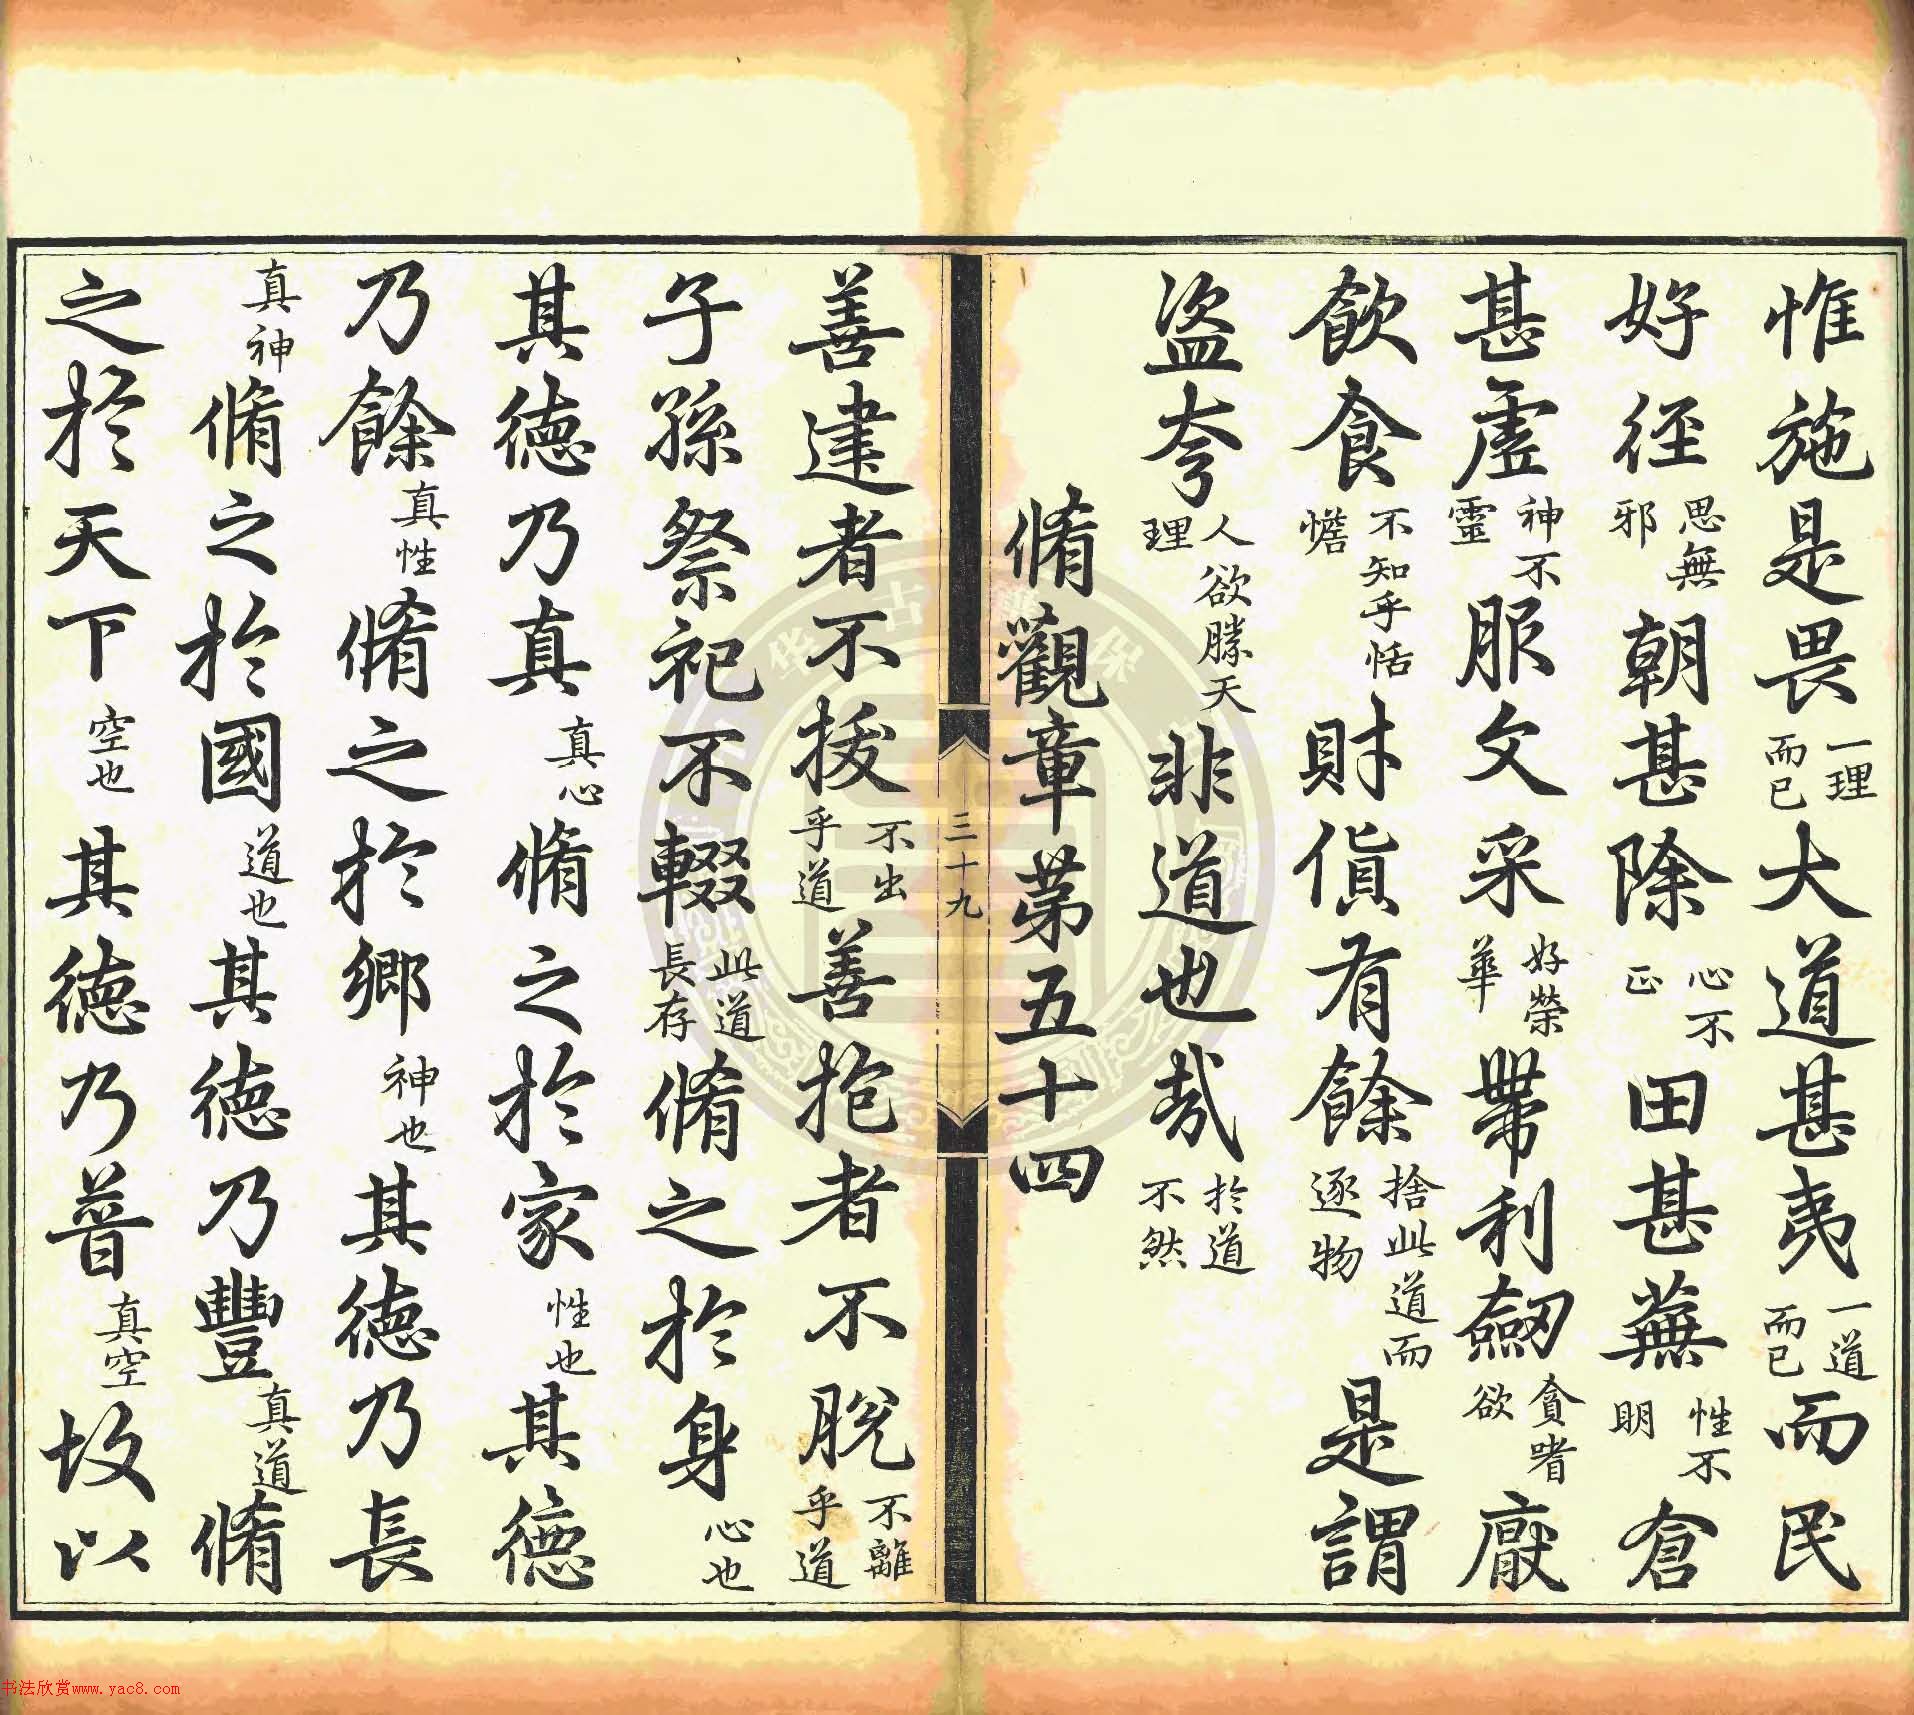 惟施是畏一理而已大道甚夷一道而已而民
好徑思無邪朝甚除心不正田甚蕪性不明倉
甚虛神不靈服文采好榮華帶利劒貪嗜欲厭
飲食不知乎恬憺財貨有餘捨此道而逐物是謂
盜夸人欲勝天理非道也哉於道不然
脩觀章第五十四
三十九
善建者不拔不出乎道善抱者不脫不離乎道
子孫祭祀不輟此道長存脩之於身心也
其德乃真真心脩之於家性也其德
乃餘真性脩之於鄉神也其德乃長
真神脩之於國道也其德乃豐真道脩
之於天下空也其德乃普真空故以
书法欣赏www.yac8.com